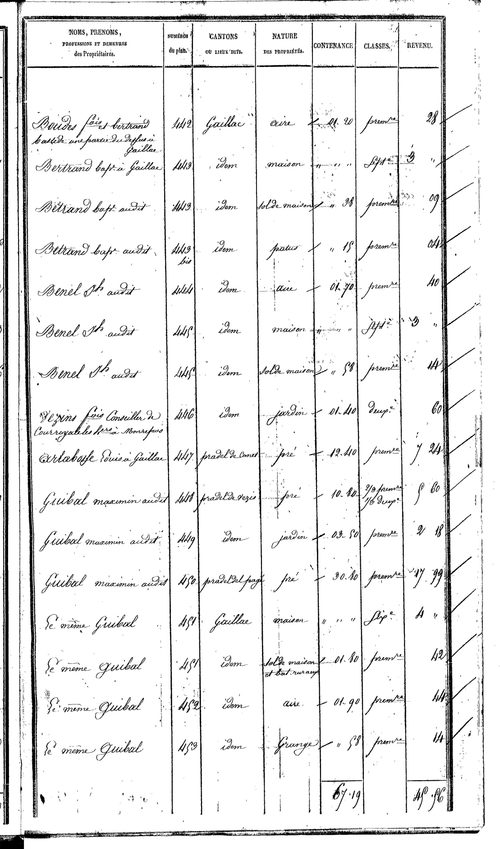 NOMS, PRENOMS, PROFESSION ET DEMEURE des Propriétaires. NUMÉROS du plan. CANTONS OU LIEUX DITS. NATURE DES PROPRIÉTÉS. CONTENANCE CLASSES. REVENU.
Boudes fois et bertrand 442 Gaillac aire 01.20 premre 28
baste de une partie du dessus à
Gaillac
Bertrand bapt à Gaillac 443 idem maison " " " Septe 3 "
Betrand bapt audit 443 idem sol de maison " 38 premre 09
Betrand bapt audit 443 idem patus " 15 premre 04
bis
Benel Jh audit 444 idem aire 01.70 premre 40
Benel Jh audit 445 idem maison " " " Septe 3 "
Benel Jh audit 445 idem sol de maison " 58 premre 14
Vezins fois Conseiller de 446 idem jardin 01.40 deuxe 60
Cour royale
Artabasse Louis à Gaillac 447 pradel de Canet pré 12.40 premre 7 24
Guibal maximin audit 448 pradel de vezis pré 10.80 premre deuxe 5 60
Guibal maximin audit 449 idem jardin 03.50 premre 2 18
Guibal maximin audit 450 pré 30.80 premre 17 99
Le même Guibal 451 Gaillac maison " " " Sixe 4 "
Le même Guibal 451 idem sol de maison 01.80 premre 42
et bat. ruraux
Le même Guibal 452 idem aire 01.90 premre 44
Le même Guibal 453 idem Grange " 58 premre 14
67.19 45.56